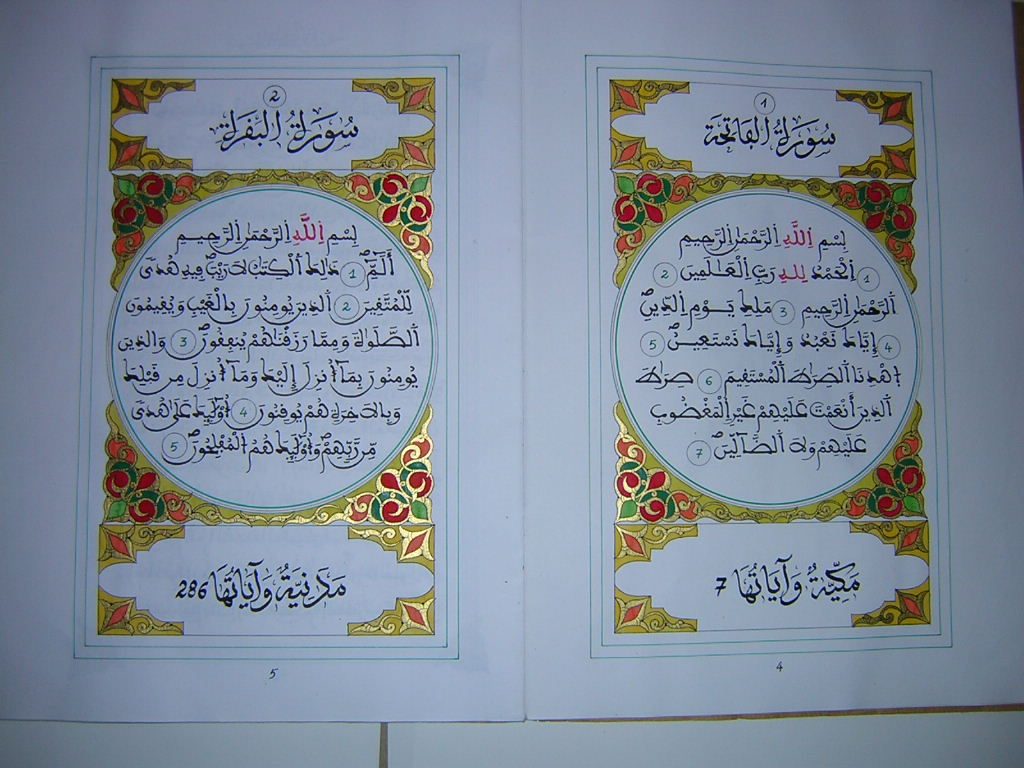 1
سُورَةُ الْفَاتِحَة
بِسْمِ اِللَّهِ اِلرَّحْمَٰنِ اِلرَّحِيمِ
1 اِلْحَمْدُ لِلهِ رَبِّ اِلْعَٰلَمِينَ 2
اَلرَّحْمَٰنِ اِلرَّحِيمِ 3 مَلِكِ يَوْمِ اِلدِّينِ
4 إِيَّاكَ نَعْبُدُ وَإِيَّاكَ نَسْتَعِينُ 5
اَهْدِنَا اَلصِّرَٰطَ اَلْمُسْتَقِيمَ 6 صِرَٰطَ
اَلذِينَ أَنْعَمْتَ عَلَيْهِمْ غَيْرِ اِلْمَغْضُوبِ
عَلَيْهِمْ وَلَا اَلضَّآلِّينَ 7
مَكِّيَّةٌ وَآيَاتُهَا 7
4
2
سُورَةُ الْبَقَرَة
بِسْمِ اِللَّهِ اِلرَّحْمَٰنِ اِلرَّحِيمِ
أَلَمِّٓ 1 ذَٰلِكَ اَلْكِتَٰبُ لَا رَيْبَ فِيهِ هُدىً
لِّلْمُتَّقِينَ 2 اَلذِينَ يُومِنُونَ بِالْغَيْبِ وَيُقِيمُونَ
اَلصَّلَوٰةَ وَمِمَّا رَزَقْنَٰهُمْ يُنفِقُونَ 3 وَالذِينَ
يُومِنُونَ بِمَآ أُنزِلَ إِلَيْكَ وَمَآ أُنزِلَ مِن قَبْلِكَ
وَبِالَاخِرَةِ هُمْ يُوقِنُونَ 4 أُوْلَٰٓئِكَ عَلَىٰ هُدىً
مِّن رَّبِّهِمْ وَأُوْلَٰٓئِكَ هُمُ اُلْمُفْلِحُونَ 5
مَدَنِيَّةٌ وَآيَاتُهَا 286
5